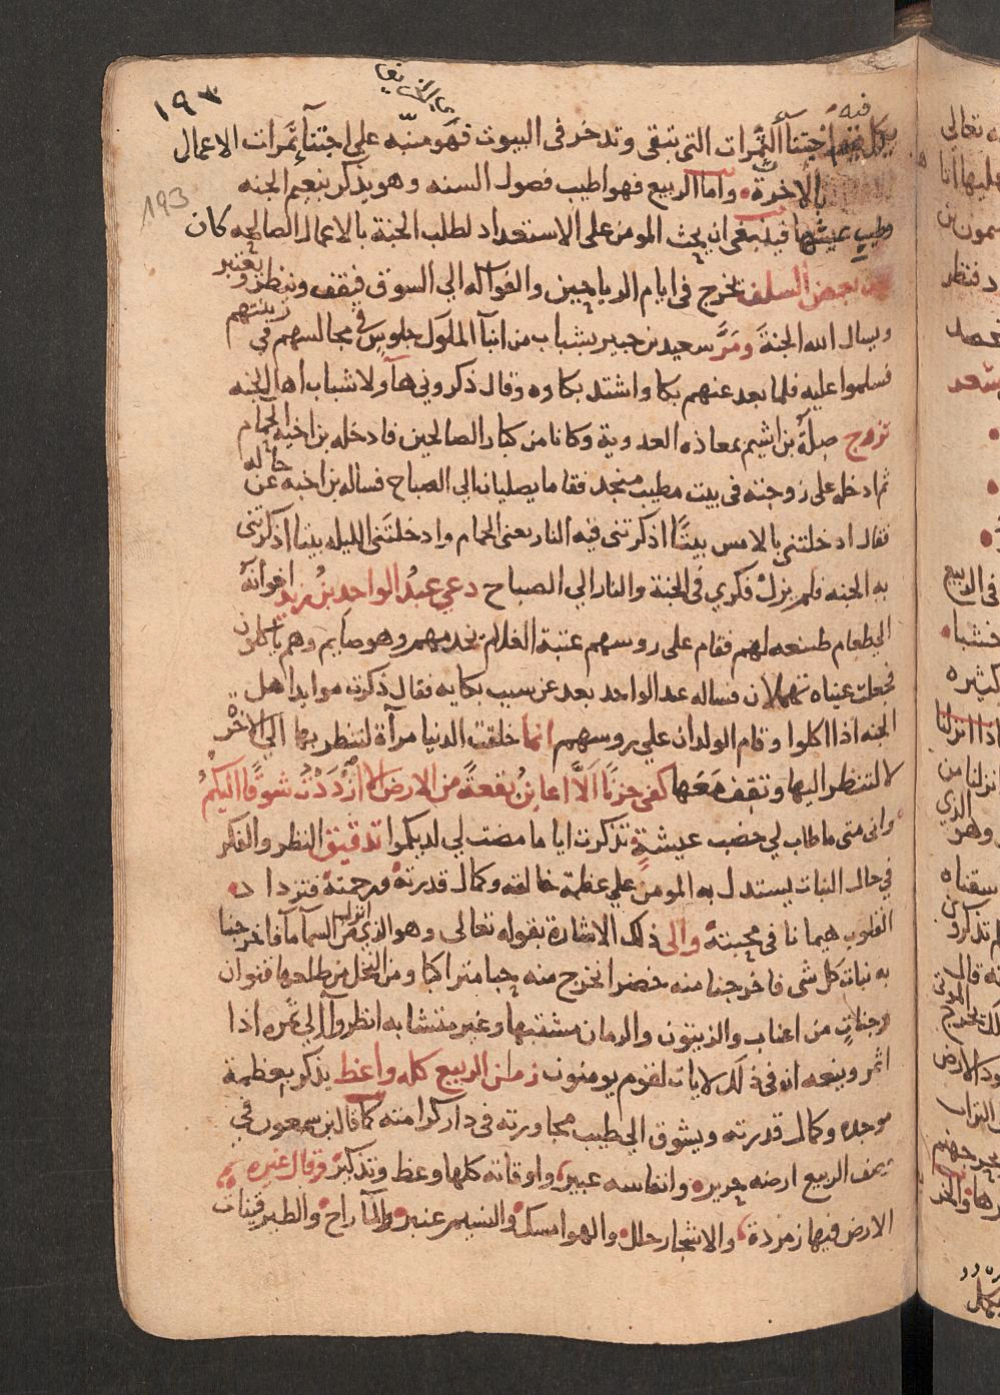 ١٩٣
193
فيه
يكمل فيه اجتنآ الثمرات التي تبقى وتدخر في البيوت فهو منبه على اجتنآ ثمرات الاعمال
بالاخرة واما الربيع فهو اطيب فصول السنه وهو يذكر بنعيم الجنه
وطيب عيشها فينبغي ان يحث المومن على الاستعداد لطلب الجنة بالاعمال الصالحه كان
بعض السلف يخرج في ايام الرياحين والفواكه الي السوق فيقف وينظر ويعتبر
ويسال الله الجنة ومر سعيد بن جبير بشباب من ابنآ الملوك جلوس في مجالسهم في زينتهم
فسلموا عليه فلما بعد عنهم بكا واشتد بكاوه وقال ذكروني هآولا شباب اهل الجنه
تزوج صلة بن اشيم بمعاذه العدوية وكانا من كبار الصالحين فادخله بن اخيه الحمام
ثم ادخله على زوجته في بيت مطيب منجد فقاما يصليان الي الصباح فساله بن اخيه عن حاله
فقال ادخلتني بالامس بيتًا اذكرتني فيه النار يعني الحمام وادخلتني الليله بيتا اذكرتني
به الجنه فلم يزل فكري في الجنة والنار الي الصباح دعي عبد الواحد بن زيد اخوانه
الي طعام صنعه لهم فقام على روسهم عتبة الغلام يخدمهم وهو صايم وهم ياكلون
فجعلت عيناه تهملان فساله عبد الواحد بعد عن سبب بكايه فقال ذكرت موايد اهل
الجنه اذا اكلوا وقام الولدان علي روسهم انما خلقت الدنيا مرآة لننظر بها الي الاخرة
لا لننظر اليها ونقف معها كفى حزنًا الا اعاين بقعة من الارض الا ازددت شوقًا اليكم
واني متى ما طاب لي خضب عيشة تذكرت اياما مضت لي لديكموا تدقيق النظر والفكر
في حال النبات يستدل به المومن علي عظمة خالقه وكمال قدرته ورحمته فتزداد
القلوب هيمانا في محبته والى ذلك الاشارة بقوله تعالى وهو الذي انزل من السمآ مآ فاخرجنا
به نبات كل شى فاخرجنا منه خضرا نخرج منه حبا متراكبا ومن النخل من طلعها قنوان
وجنات من اعناب والزيتون والرمان مشتبها وغير متشابه انظروا الي ثمره اذا
اثمر وينعه ان في ذلكم لايات لقوم يومنون زمان الربيع كله واعظ يذكر بعظمة
موجده وكمال قدرته ويشوق الي طيب مجاورته في دار كرامته كما قال بن سمعون في
وصف الربيع ارضه حرير وانفاسه عبير واوقاته كلها وعظ وتذكير وقال غيره
الارض فيها زمردة والاشجار حلل والهوا مسك والنسيم عنبر والمآ راح والطير قينات